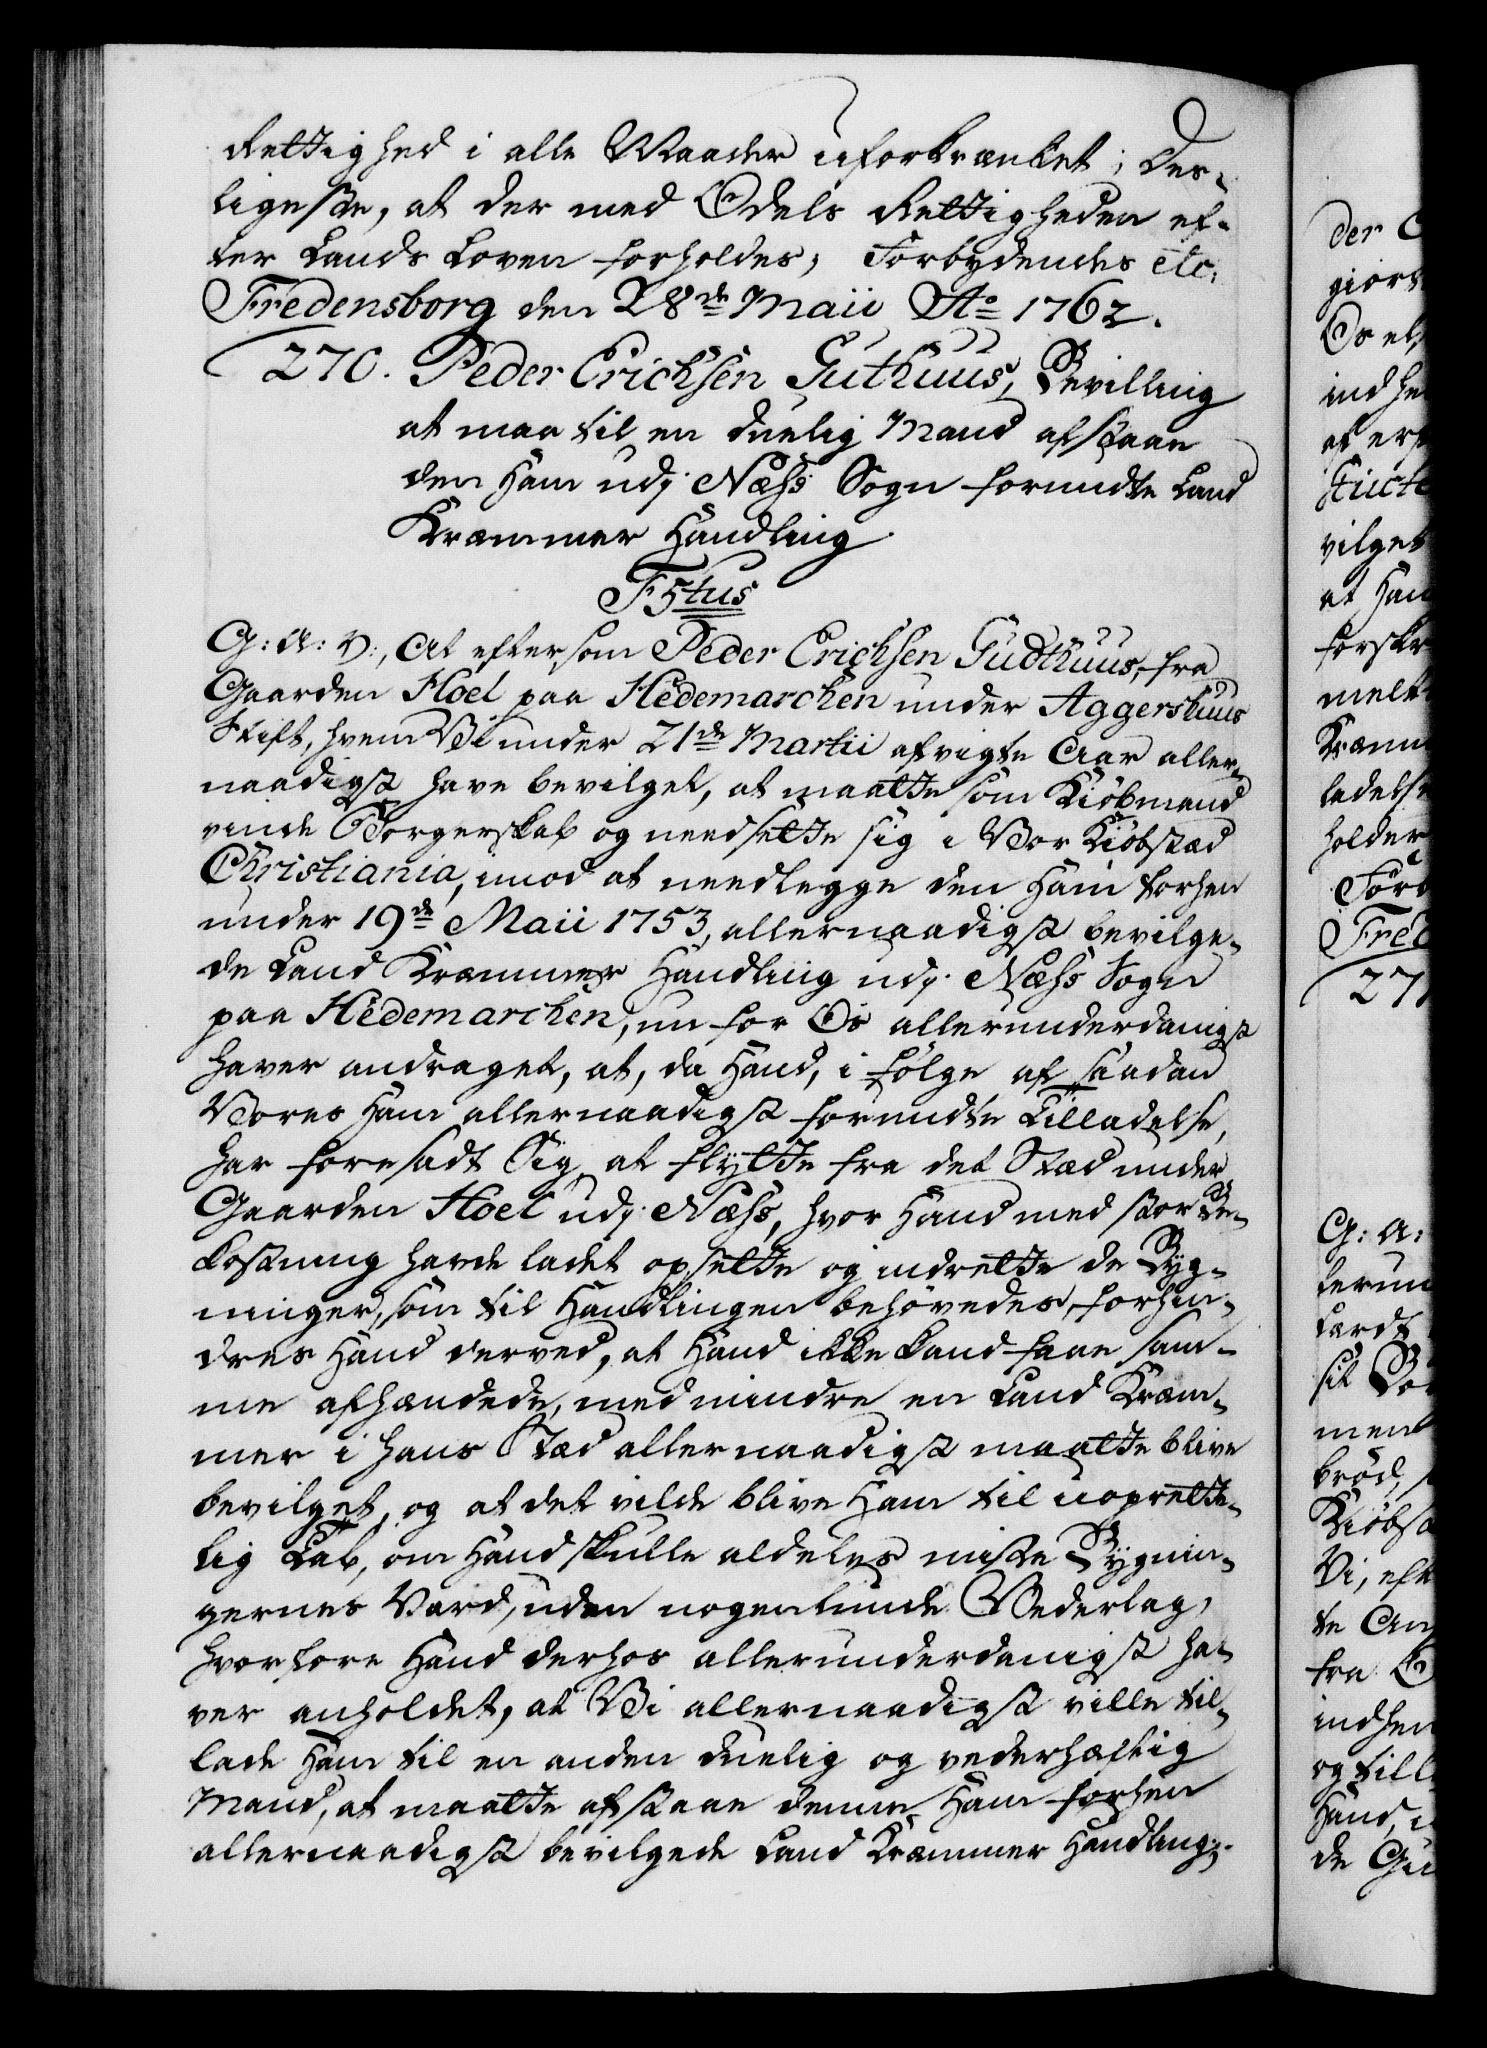 Rettighed i alle Maader uforkrænket; Des-
ligeste, at der med Odels Rettigheden ef-
ter Lands Loven forholdes; Forbydendes etc.
Fredensborg den 28de Maii Ao 1762.
270. Peder Erichsen Guthuus, Bevilling
at maa til en duelig Mand afstaae
den Ham udj Næss Sogn forundte Land
Kræmmer Handling.
F5tus
G: A: V:, At eftersom Peder Erichsen Gudthuus, fra
Gaarden Hoel paa Hedemarchen under Aggershuus
Stift, hvem Vi under 21de Martii afvigte Aar aller-
naadigst have bevilget, at maatte som Kiøbmand
vinde Borgerskab og needsette sig i Vor Kiøbstæd
Christiania, imod at needlegge den Ham forhen
under 19de Maii 1753, allernaadigst bevilge-
de Land Kræmmer Handling udj Næss Sogn
paa Hedemarchen, nu for Os allerunderdanigst
haver andraget, at, da Hand, i følge af saadan
Vores Ham allernaadigst forundte Tilladelse,
har foresadt Sig, at flytte fra det Stæd under
Gaarden Hoel udj Næss, hvor Hand med stor Be-
kostning havde ladet opsette og indrette de Byg-
ninger, som til Handlingen behøvedes, forhin-
dres Hand derved, at Hand ikke kand faae sam-
me afhændede, medmindre en Land Kræm-
mer i hans Stæd allernaadigst maatte blive
bevilget, og at det vilde blive Ham til uoprette-
lig Tab, om Hand skulle aldeles miste Bygnin-
gernes Værd, uden nogenlunde Vederlag,
hvorfore Hand derhos allerunderdanigst ha-
ver anholdet, at Vi allernaadigst ville til-
lade Ham til en anden duelig og vederhæftig
Mand, at maatte afstaae denne Ham forhen
allernaadigst bevilgede Land Kræmmer Handling;